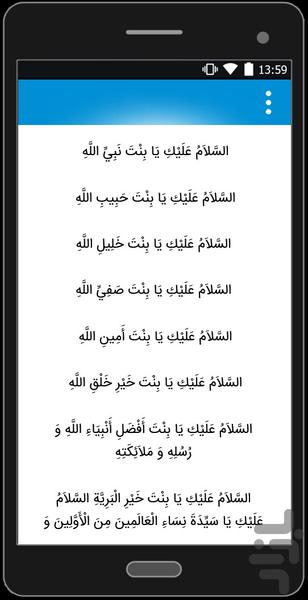 13:59
السَّلاَمُ عَلَيْكِ يَا بِنْتَ نَبِيِّ اللَّهِ
السَّلاَمُ عَلَيْكِ يَا بِنْتَ حَبِيبِ اللَّهِ
السَّلاَمُ عَلَيْكِ يَا بِنْتَ خَلِيلِ اللَّهِ
السَّلاَمُ عَلَيْكِ يَا بِنْتَ صَفِيِّ اللَّهِ
السَّلاَمُ عَلَيْكِ يَا بِنْتَ أَمِينِ اللَّهِ
السَّلاَمُ عَلَيْكِ يَا بِنْتَ خَيْرِ خَلْقِ اللَّهِ
السَّلاَمُ عَلَيْكِ يَا بِنْتَ أَفْضَلِ أَنْبِيَاءِ اللَّهِ وَ
رُسُلِهِ وَ مَلاَئِكَتِهِ
السَّلاَمُ عَلَيْكِ يَا بِنْتَ خَيْرِ الْبَرِيَّةِ السَّلاَمُ
عَلَيْكِ يَا سَيِّدَةَ نِسَاءِ الْعَالَمِينَ مِنَ الْأَوَّلِينَ وَ
بازار